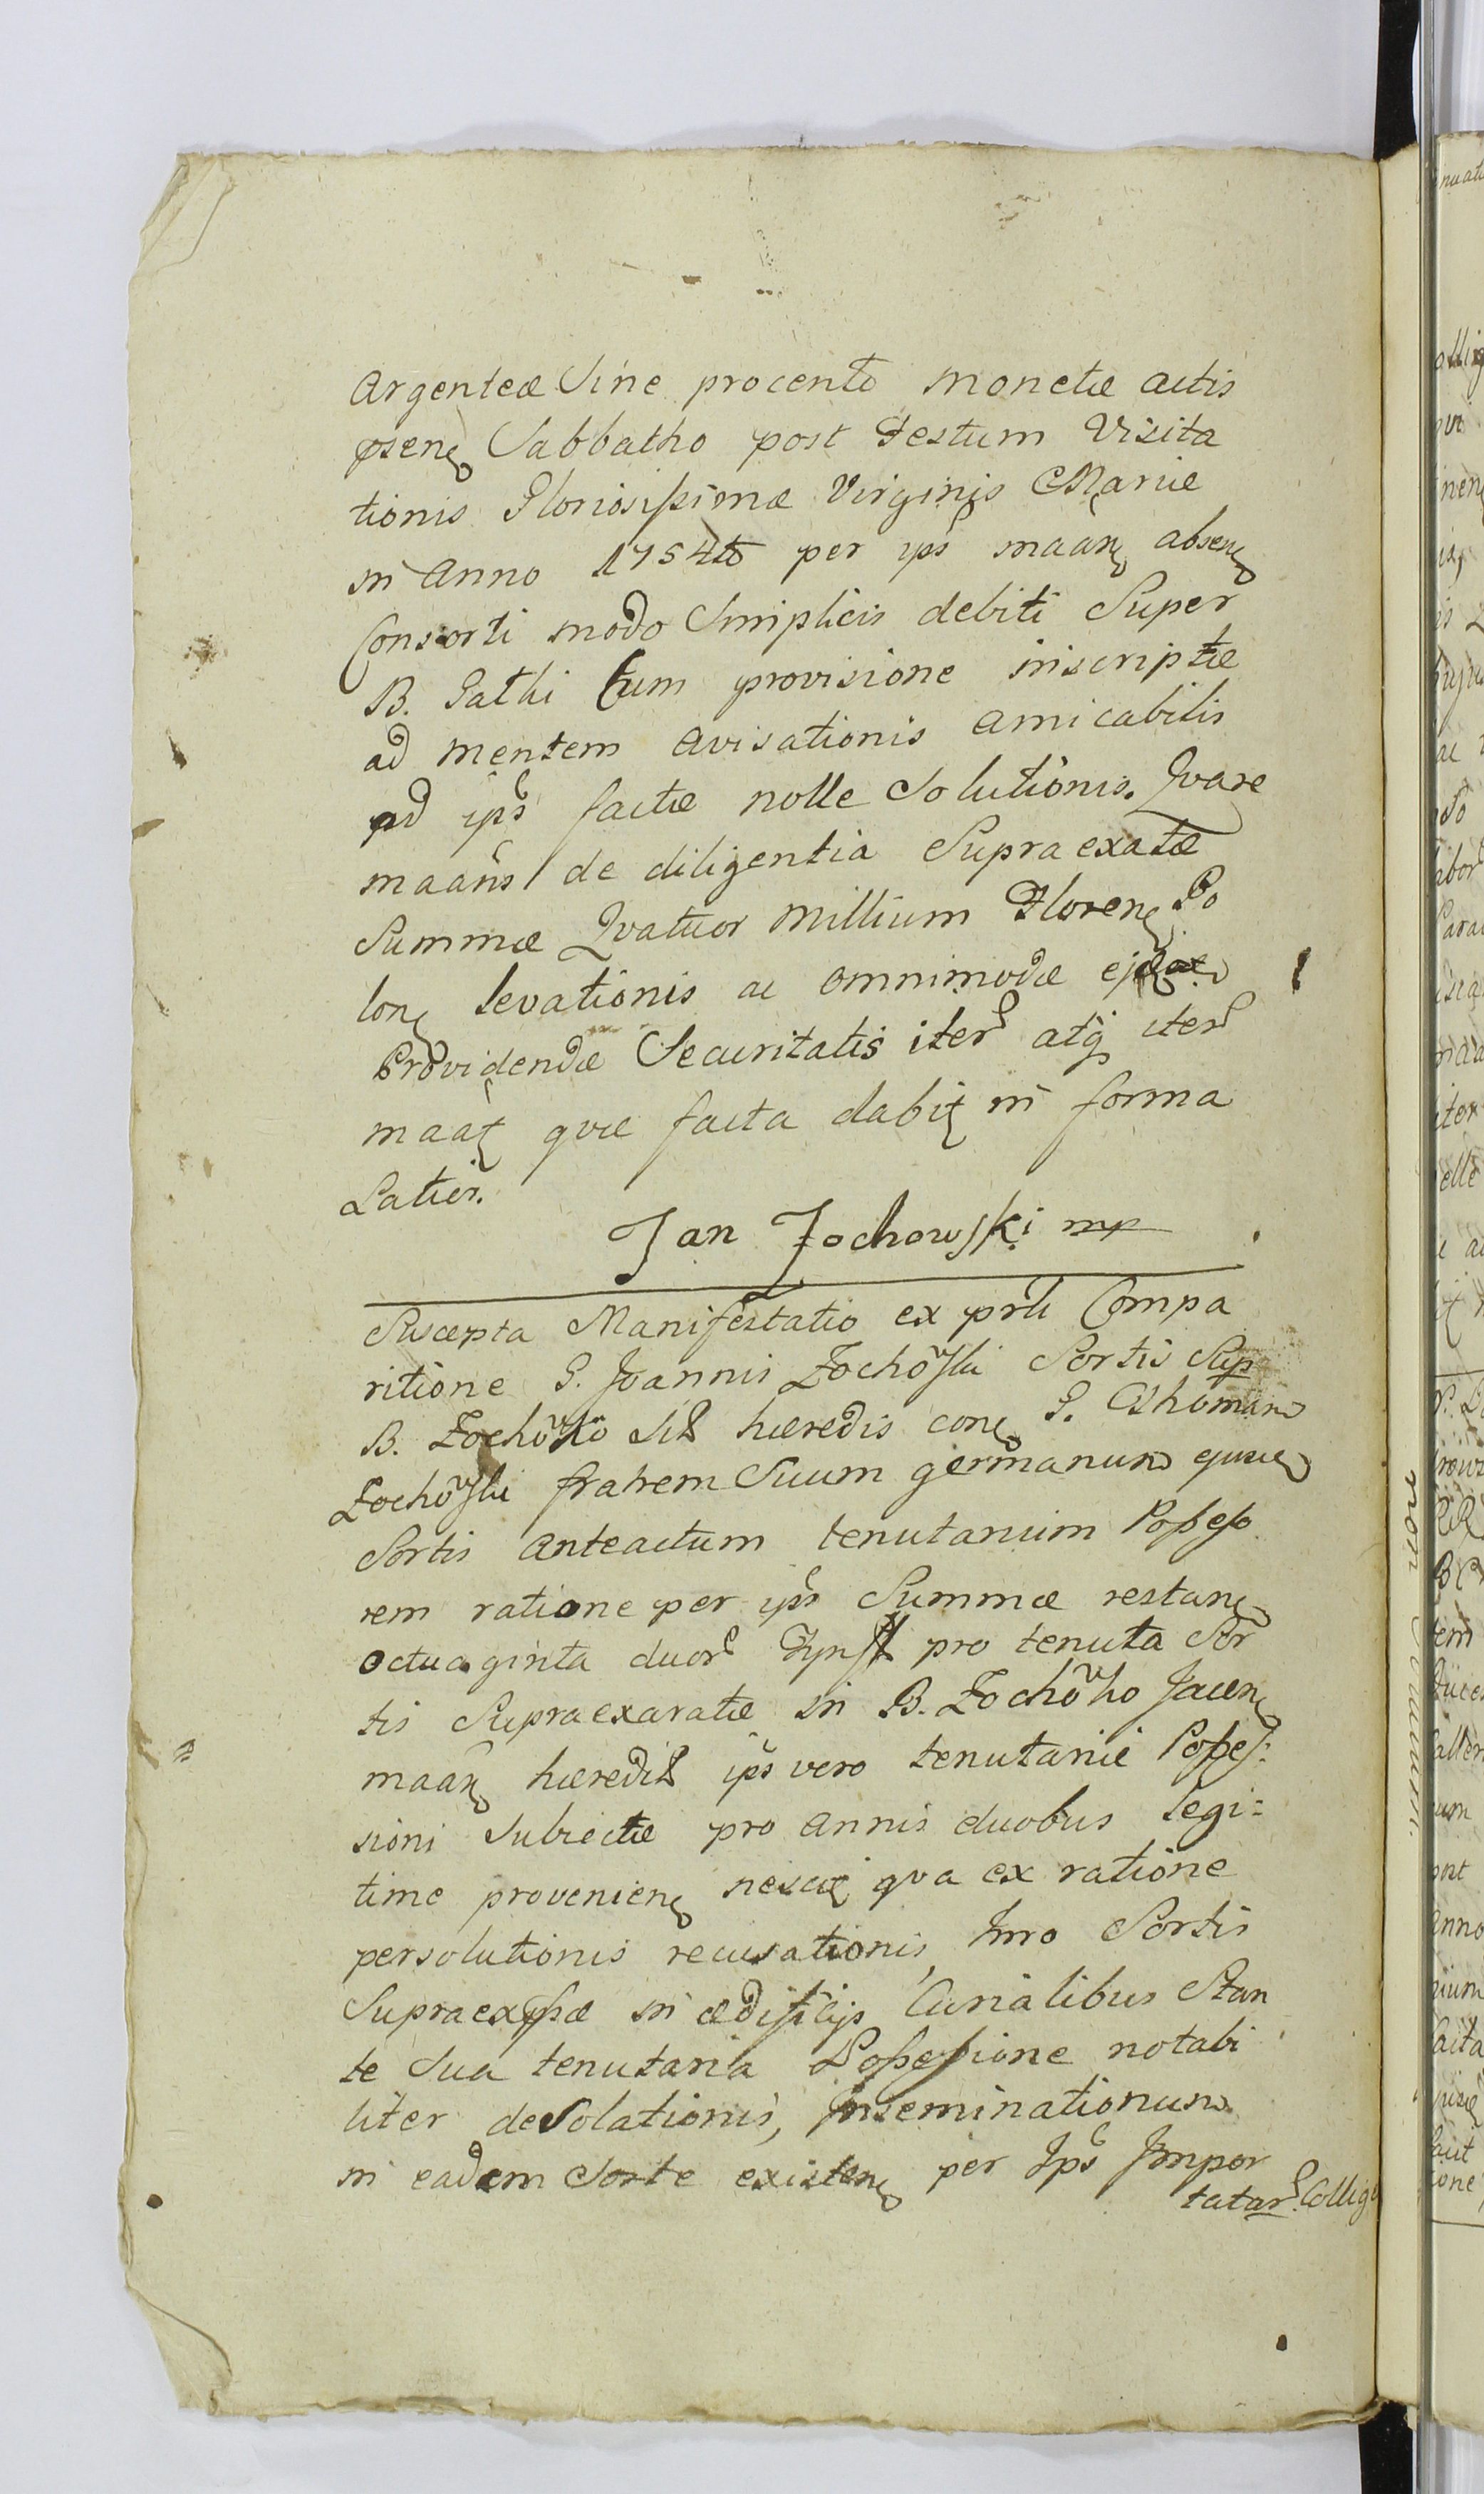 Argenteæ Sine procento monetæ actis
pseñ Sabbatho post Festum Visita
tionis Gloriosissimæ Virginis Mariæ
in Anno 1754to per ips maañ absen
Consorti modo Simplicis debiti Super
B. Gathi Cum provisione inscriptæ
ad mentem avisationis amicabilis
ad ips factæ nolle Solutionis. Qvare
maans de diligentia Supraexatæ
Summæ Qvatuor Millium Floren Po
lon levationis ac omnimodæ
Providendæ Securitatis iter atq iter
maat qvæ facta dabit in forma
Latiori.
Jan Żochowski mp
Suscepta Manifestatio ex prsti Compa
ritione G. Joannis Żochowski Sortis Sup
B. Żochowo hæredis con G. Thomam
Żochowski fratrem Suum germanum ejusd
Sortis anteactum tenutarium Possesso
rem ratione per ips Summæ restan
octuaginta duor Tynf pro tenuta Sor
tis Supraexaratæ in B. Żochowo Jacen
maan hæredit ips vero tenutariæ Posses:
sioni Subiectæ pro annis duobus legi:
time provenien nescit qva ex ratione
persolutionis recusationis, Imo Sortis
Supraexpssæ in ædificijs Curialibus Stan
te Sua tenutaria Possessione notabi
liter desolationis, Inseminationum
in eadem Sorte existen per Ips Impor
tatar Collig